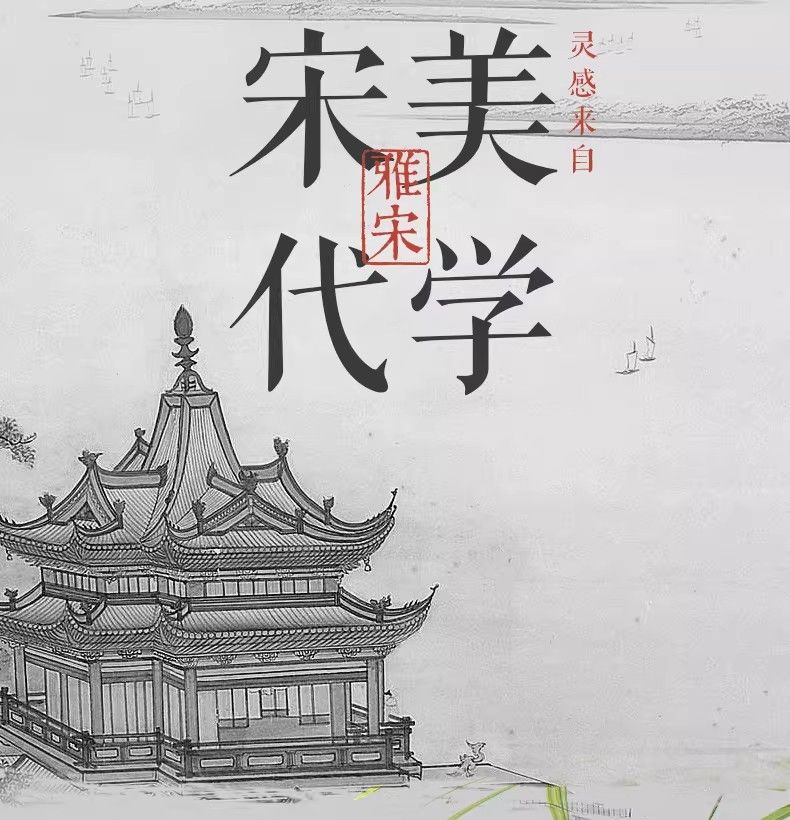 灵感来自
宋代
美学
雅宋